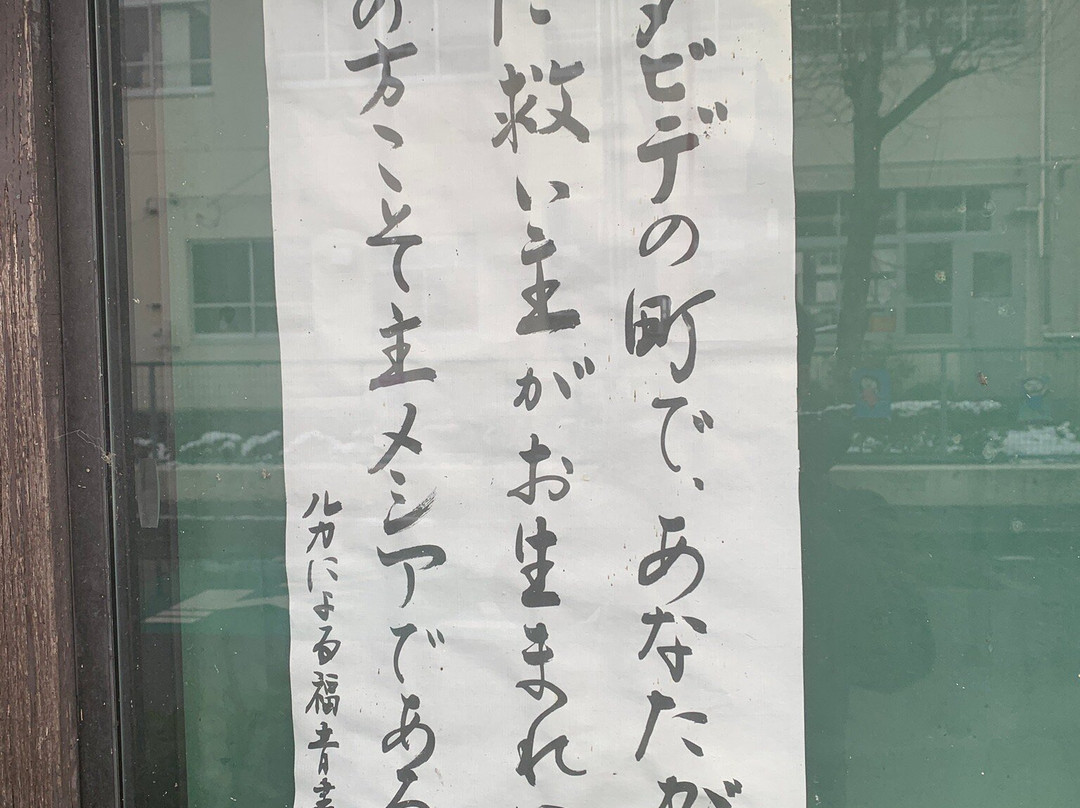 ダビデの町で、あなたが
に救い主がお生まれ
の方こそ主メシアである
ルカによる福音書